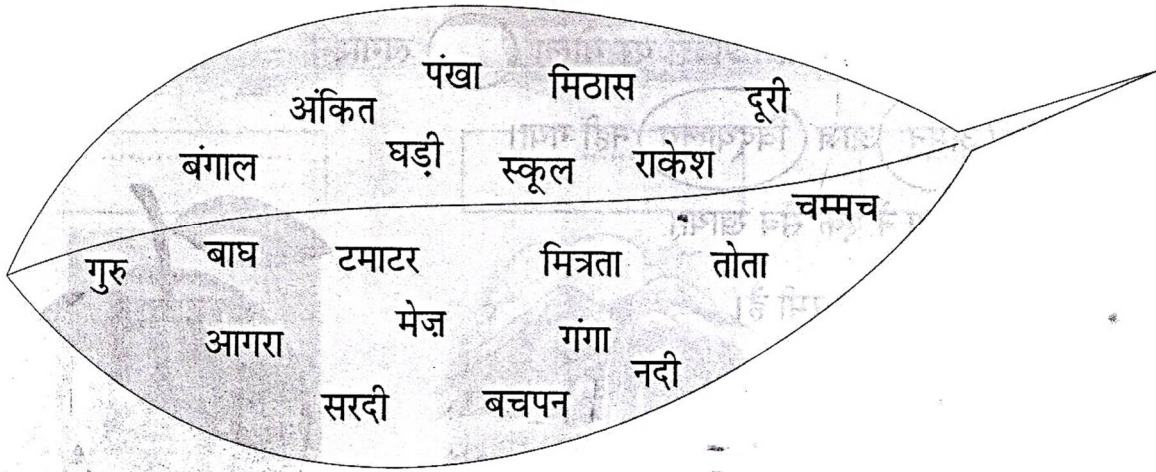 पंखा मिठास दूरी
अंकित
बंगाल घड़ी स्कूल राकेश
चम्मच
गुरु बाघ टमाटर मित्रता तोता
आगरा मेज़ गंगा
नदी
सरदी बचपन